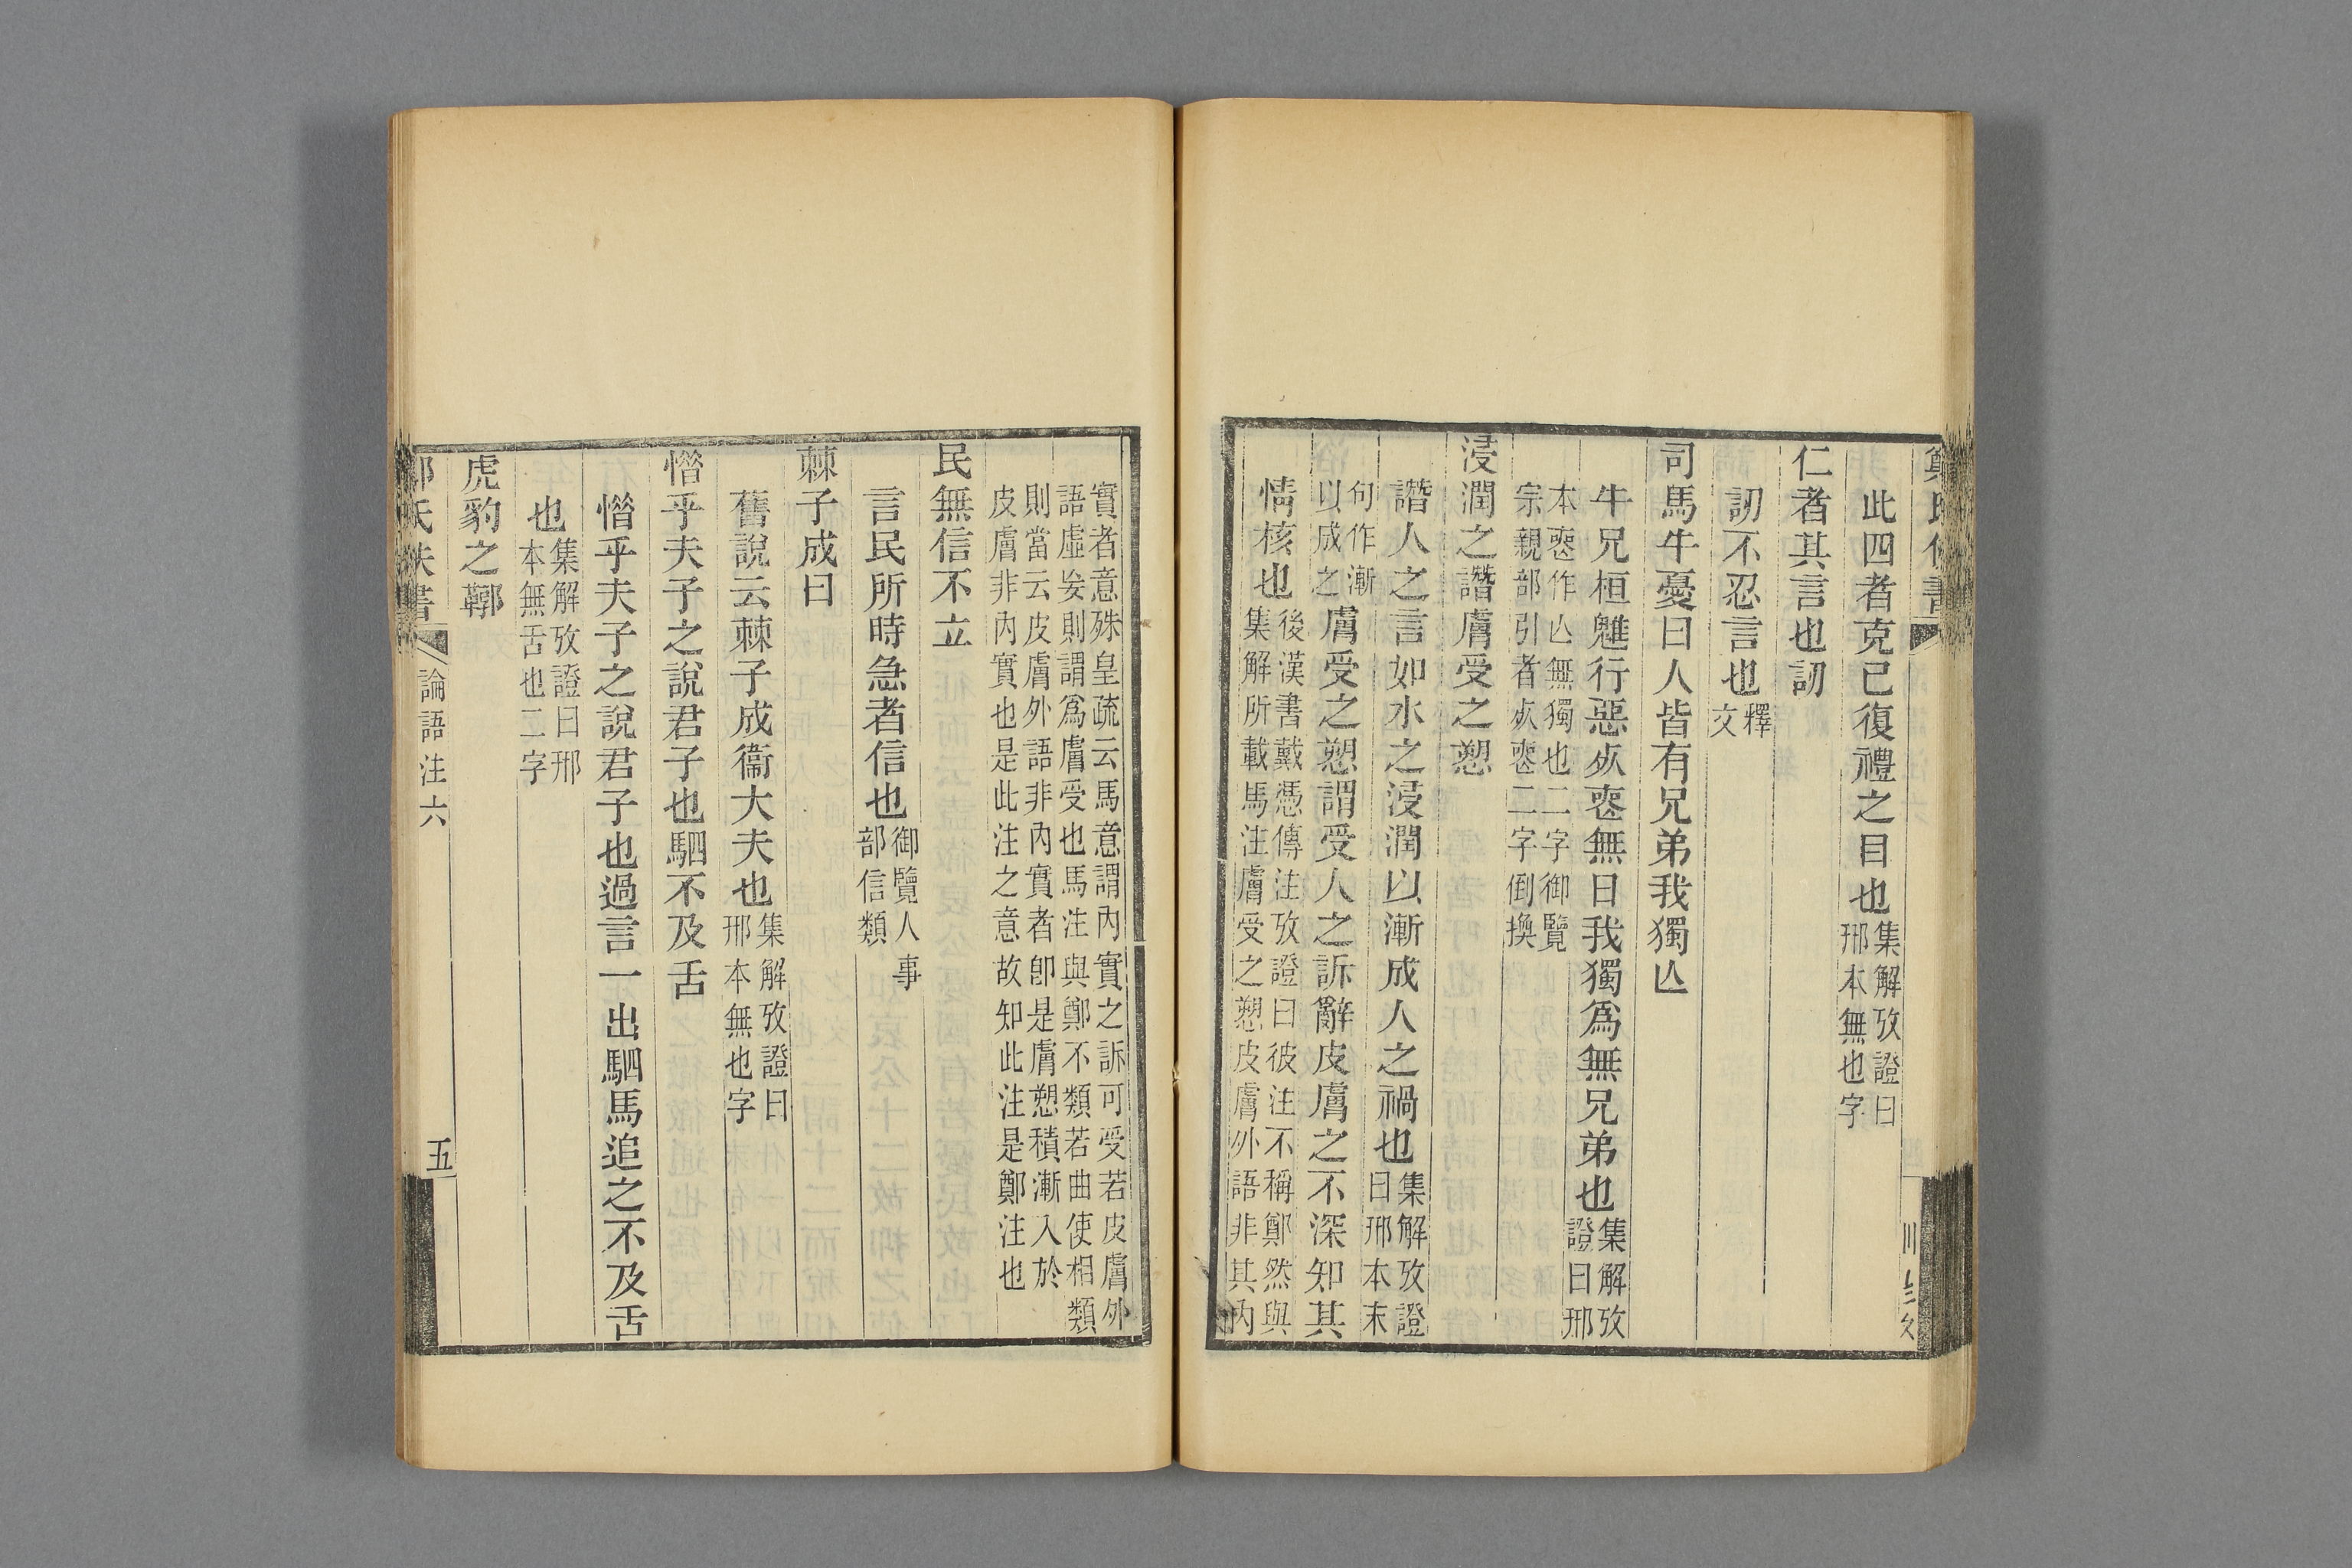 此四者克已復禮之目也集解攷證曰邢本無也字
仁者其言也訒
訒不忍言也釋文
司馬牛憂曰人皆有兄弟我獨亾
牛兄桓魋行惡死喪無日我獨爲無兄弟也集解攷證曰邢
本喪作亾無獨也二字御覽宗親部引者死喪二字倒換
浸潤之譖膚受之愬
譖人之言如水之浸潤以漸成人之禍也集解攷證曰邢本末
句作漸以成之膚受之愬謂受人之訴辭皮膚之不深知其
情核也後漢書戴憑傳注攷證曰彼注不稱鄭然與集解所載馬注膚受之愬皮膚外語非其內
實者意殊皇疏云馬意謂內實之訴可受若皮膚外語虛妄則謂爲膚受也馬注與鄭不類若曲使相類
則當云皮膚外語非內實者卽是膚愬積漸入於皮膚非內實也是此注之意故知此注是鄭注也
民無信不立
言民所時急者信也御覽人事部信類
棘子成曰
舊說云棘子成衞大夫也集解攷證曰邢本無也字
惜乎夫子之說君子也駟不及舌
惜乎夫子之說君子也過言一出駟馬追之不及舌
也集解攷證曰邢本無舌也二字
虎豹之鞹
鄭氏佚書
論語注六
五